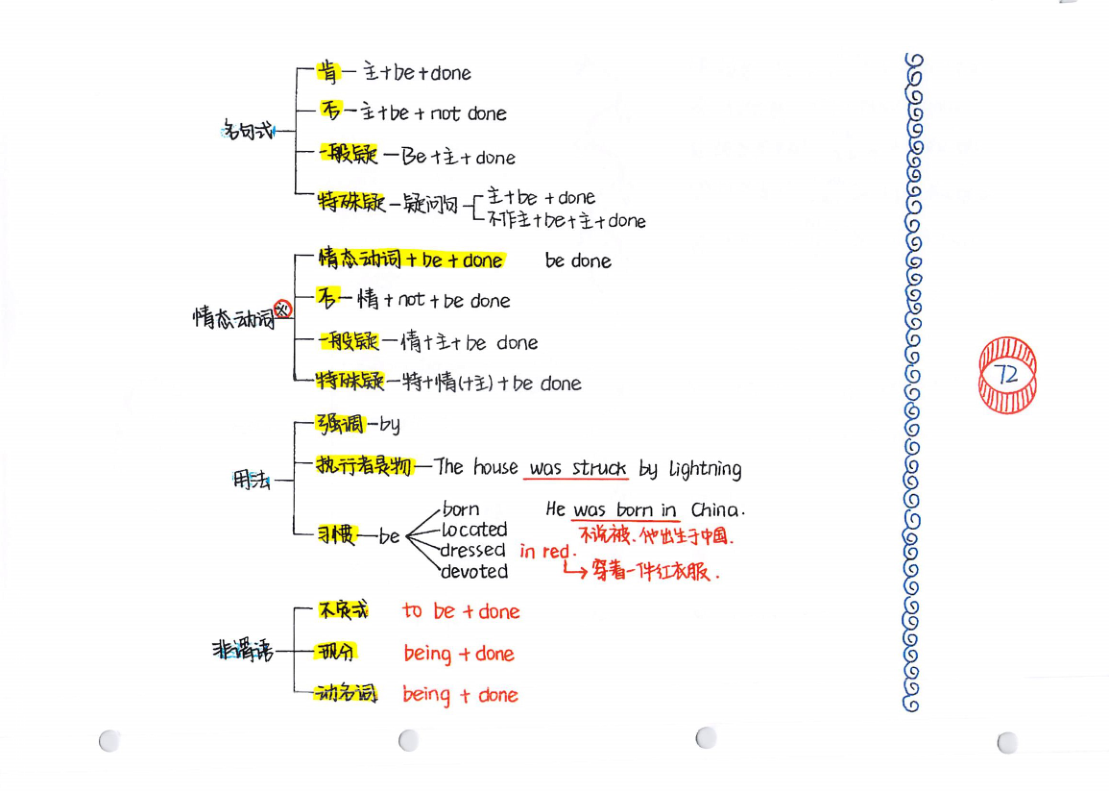 各句式
肯—主+be+done
否—主+be+not done
一般疑—Be+主+done
特殊疑—疑问句
主+be+done
不作主+be+主+done
情态动词※
情态动词+be+done be done
否—情+not+be done
一般疑—情+主+be done
特殊疑—特+情(+主)+be done
用法
强调—by
执行者是物—The house was struck by lightning
习惯—be
born He was born in China.
located 不说被.他出生于中国.
dressed in red.
devoted 穿着一件红衣服.
非谓语
不定式 to be+done
现分 being+done
动名词 being+done
72